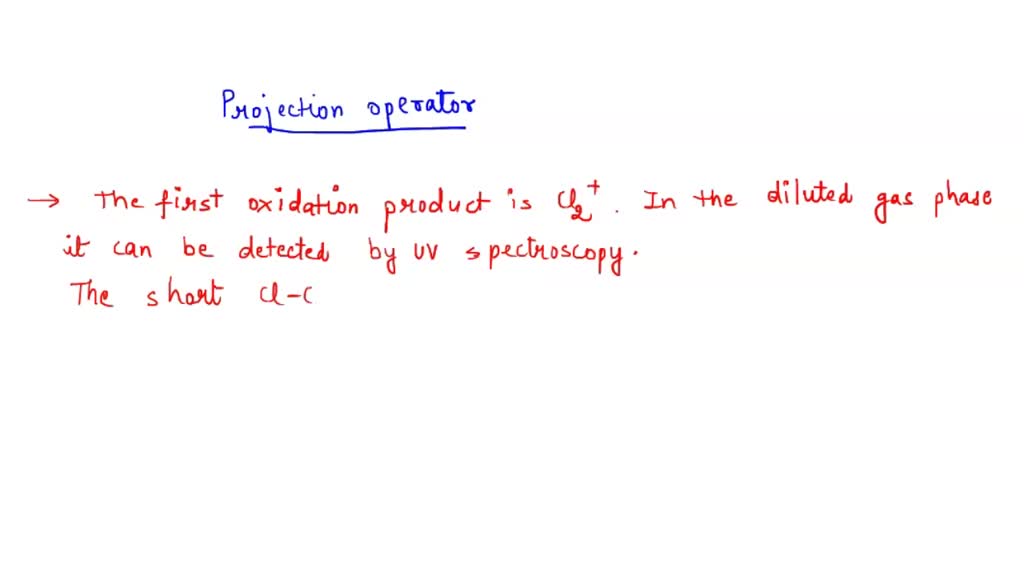 Projection operator
→ The first oxidation product is Cl₂⁺. In the diluted gas phase
it can be detected by UV spectroscopy.
The short Cl-C